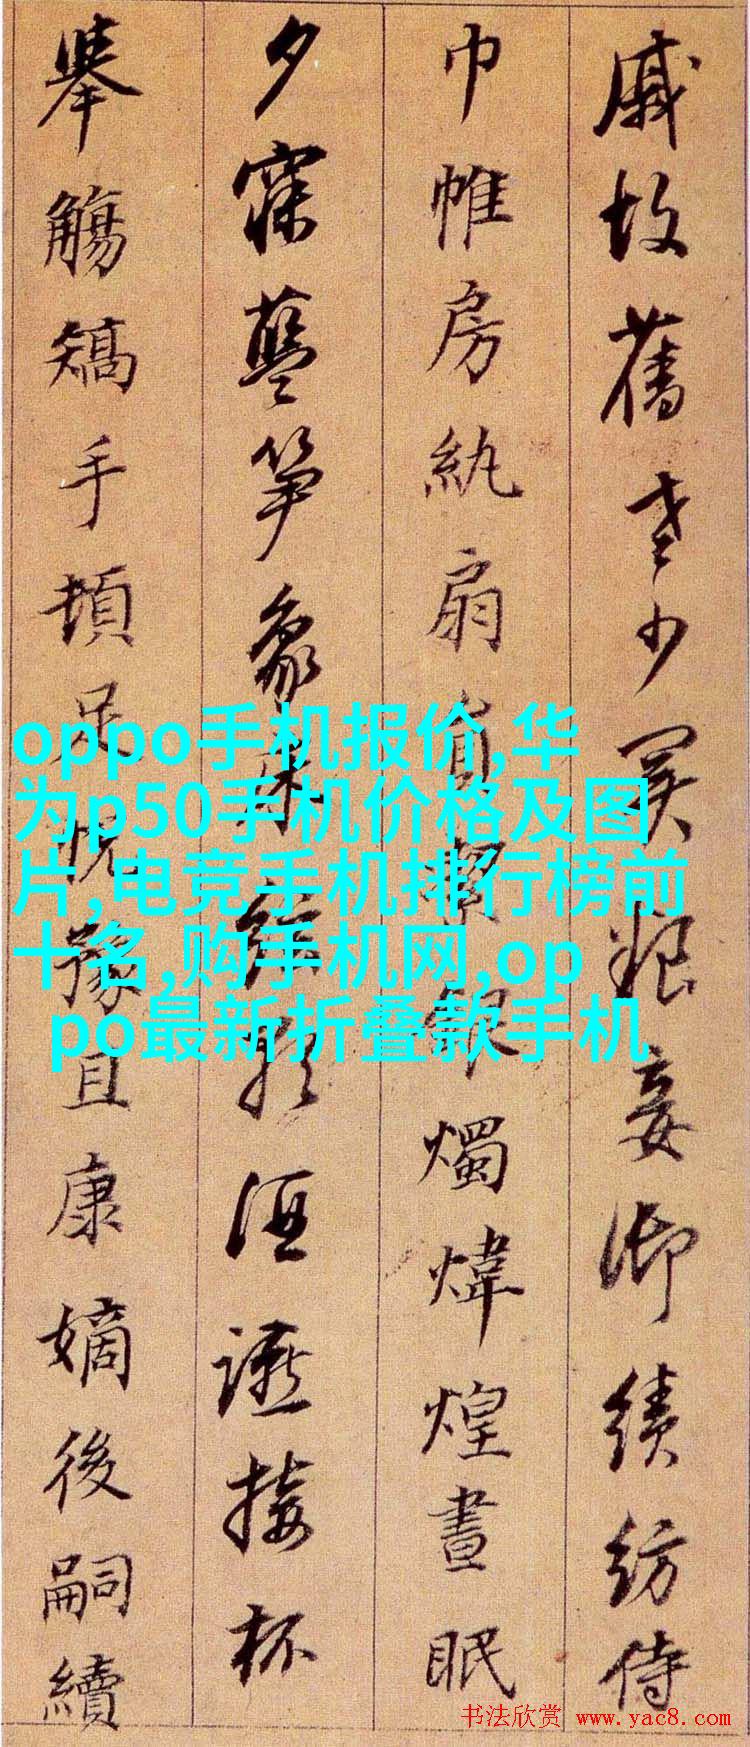 戚故舊老少異粮妾御績紡侍
巾帷房紈扇員潔銀燭煒煌晝眠
夕寐藍笋象床絃歌酒讌接杯
舉觴矯手頓足悅豫且康嫡後嗣續
oppo手机报价,华
为p50手机价格及图
片,电竞手机排行榜前
十名,购手机网,op
po最新折叠款手机
书法欣赏 www.yac8.com